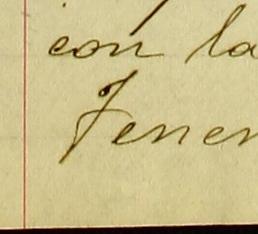 con la
Tener